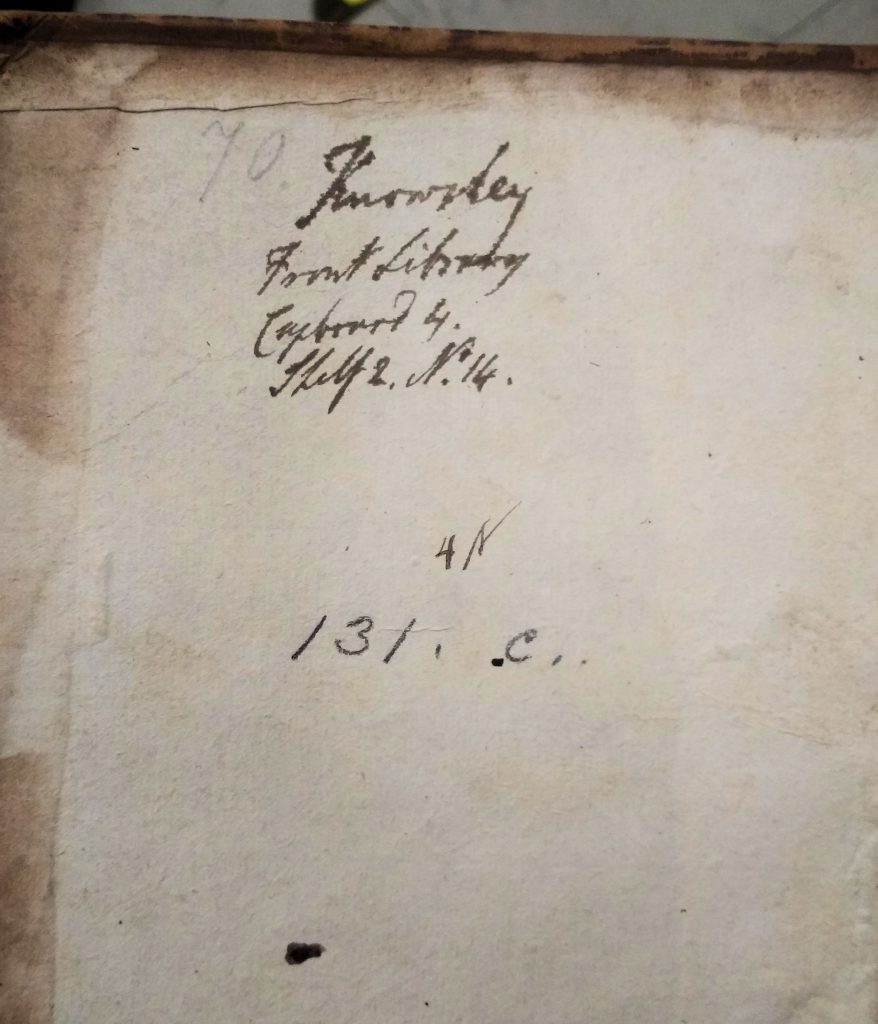 70.
Knowsley
Front Library
Cupboard 4.
Shelf 2. No. 14.
4 N
131. c.